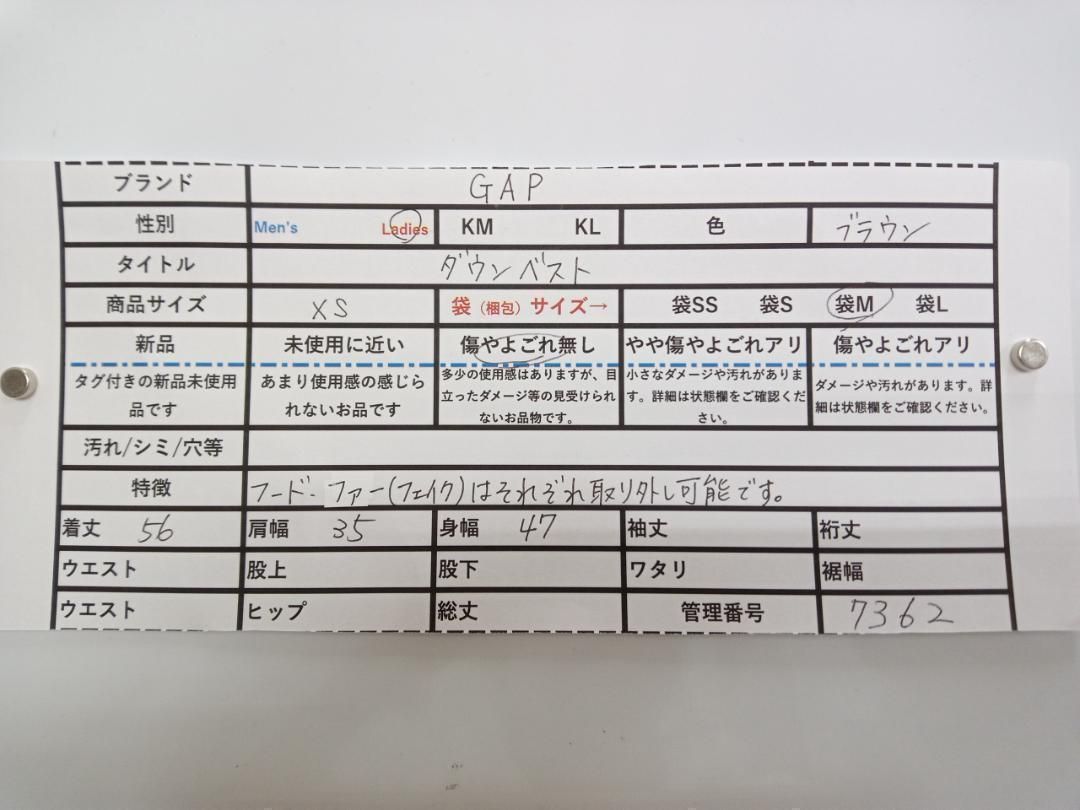 ブランド GAP
性別 Men's Ladies KM KL 色 ブラウン
タイトル ダウンベスト
商品サイズ XS 袋（梱包）サイズ→ 袋SS 袋S 袋M 袋L
新品 未使用に近い 傷やよごれ無し やや傷やよごれアリ 傷やよごれアリ
タグ付きの新品未使用品です あまり使用感の感じられないお品です 多少の使用感はありますが、目立ったダメージ等の見受けられないお品物です。 小さなダメージや汚れがあります。詳細は状態欄をご確認ください。 ダメージや汚れがあります。詳細は状態欄をご確認ください。
汚れ/シミ/穴等
特徴 フード・ファー(フェイク)はそれぞれ取り外し可能です。
着丈 56 肩幅 35 身幅 47 袖丈 裄丈
ウエスト 股上 股下 ワタリ 裾幅
ウエスト ヒップ 総丈 管理番号 7362